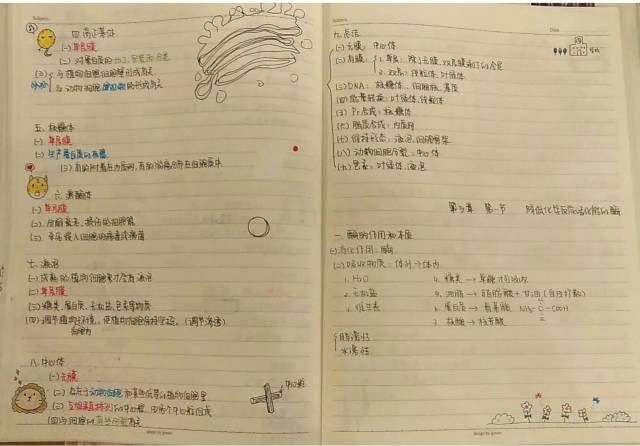 四. 高尔基体
(一) 单层膜
(二) 对蛋白质的加工,分类
(三) 与植物细胞细胞壁形成有关
与动物细胞分泌物的形成有关
五. 核糖体
(一) 无膜
(二) 生产蛋白质的机器
(三) 有的附着在内质网,有的游离分布在细胞质中
六. 溶酶体
(一) 单层膜
(二) 分解衰老、损伤的细胞器
(三) 杀死侵入细胞的病毒或病菌
七. 液泡
(一) 成熟的植物细胞才会有液泡
(二) 单层膜
(三) 糖类、蛋白质、无机盐、色素等物质
(四) 调节植物内环境,使植物细胞保持坚挺。(调节渗透)
八. 中心体
(一) 无膜
(二) 存在于动物细胞和某些低等的植物细胞里
(三) 互相垂直排列的中心粒,由两个中心粒组成
(四) 与细胞的有丝分裂有关
中心粒
design by green
九. 总结
(一) 无膜 中心体
(二) 有膜
2. 双层: 线粒体, 叶绿体
(三) DNA: 线粒体, 细胞核, 基质
(四) 能量转换: 叶绿体, 线粒体
(五) Pr合成: 核糖体
(六) 脂质合成: 内质网
(七) 维持形态: 液泡, 细胞骨架
(八) 动物细胞分裂: 中心体
(九) 色素: 叶绿体, 液泡
第5章 第一节 降低化学反应活化能的酶
一. 酶的作用和本质
(一) 消化作用: 酶
(二) 吸收物质: 体外→体内
1. H₂O
2. 无机盐
3. 维生素
4. 糖类 → 单糖
5. 油脂 → 脂肪酸 + 甘油
6. 蛋白质 → 氨基酸 NH₂-C-COOH
7. 核酸 → 核苷酸
design by green